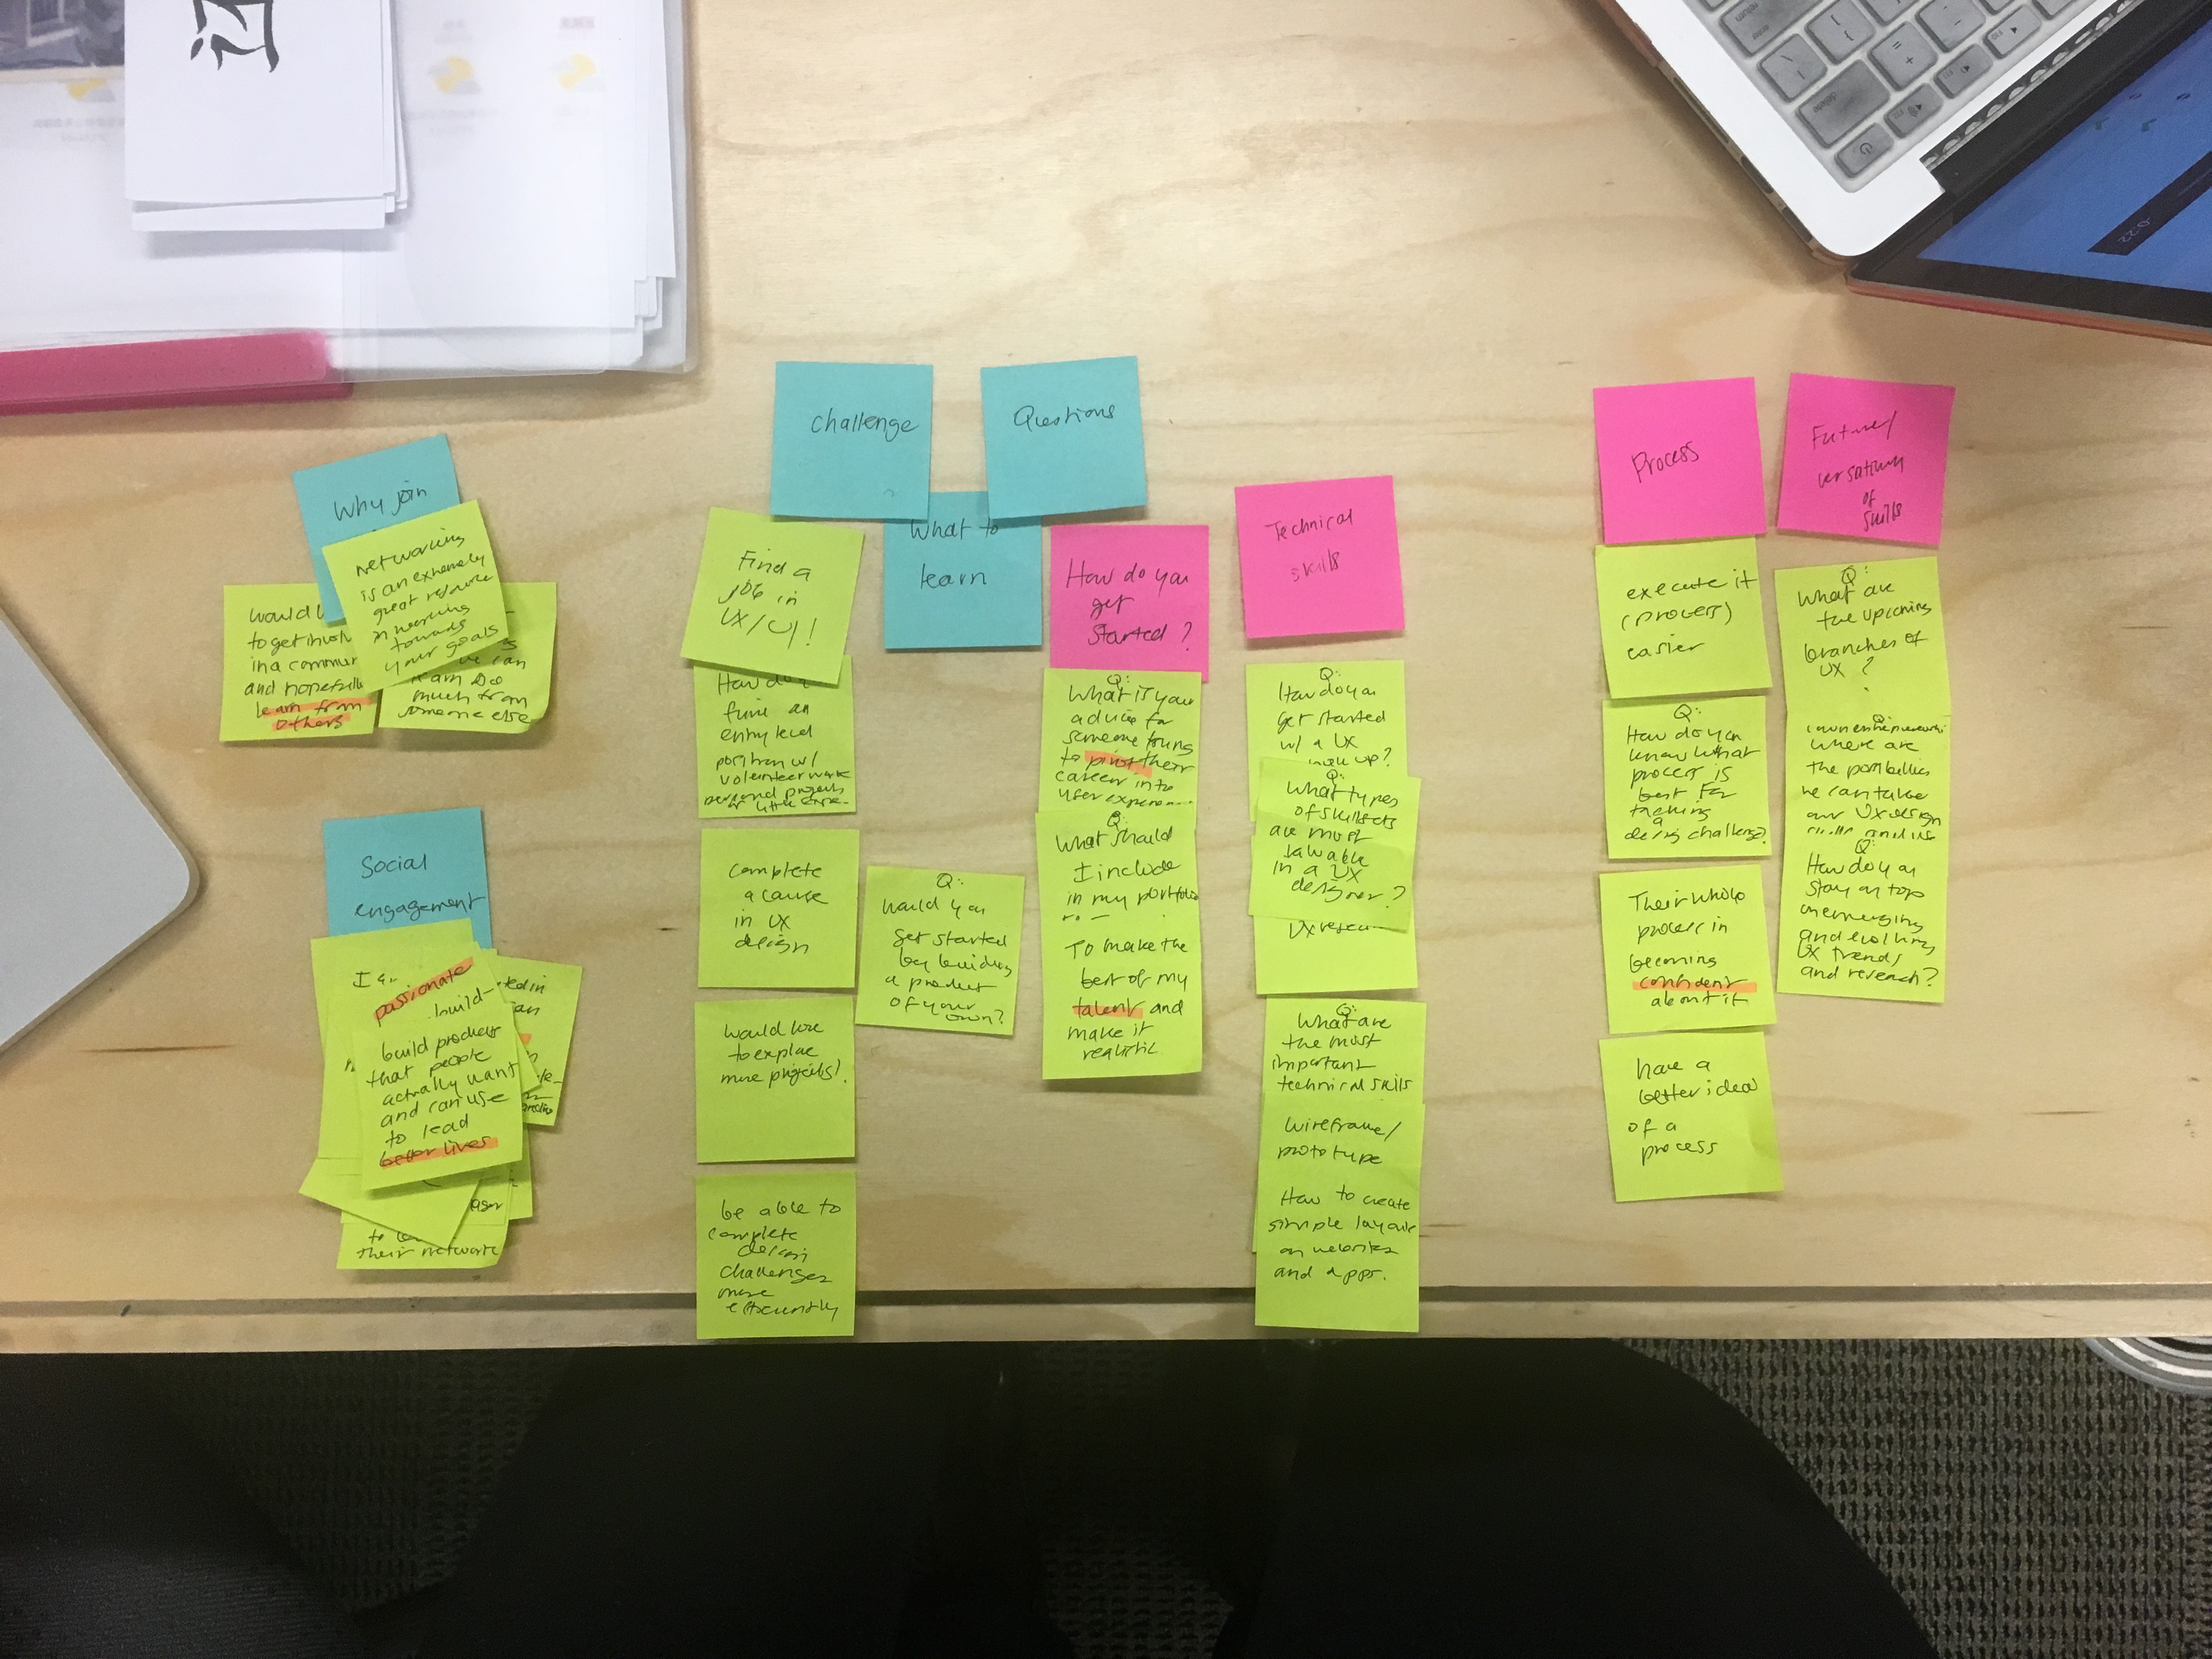 Why join
networking
is an extremely
great resource
in working
towards
your goals
would l
to get involv
in a commun
and hopefully
learn from
others
we can
learn so
much from
someone else
Social
engagement
I am
passionate
build-
build products
that people
actually want
and can use
to lead
better lives
their network
Challenge
Questions
What to
learn
Find a
job in
UX/UI!
How do
find an
entry level
position w/
volunteer work
personal projects
or little expe-
complete
a cause
in UX
design
would love
to explore
more projects!
be able to
complete
design
challenges
more
efficiently
Q:
Would you
get started
by building
a product
of your
own?
How do you
get
started?
Q:
What is your
advice for
someone trying
to pivot their
career into
user experien
Q:
What should
I include
in my portfolio
To make the
best of my
talent and
make it
realistic.
Technical
skills
Q:
How do you
get started
w/ a UX
up?
Q:
What types
of skillsets
are most
valuable
in a UX
designer?
UX resea
Q:
What are
the most
important
technical skills
wireframe/
prototype
How to create
simple layouts
on websites
and apps.
Process
execute it
(process)
easier
Q:
How do you
know what
process is
best for
tackling
a
design challenge?
Their whole
process in
becoming
confident
about it
have a
better idea
of a
process
Future/
versatility
of
skills
Q:
What are
the upcoming
branches of
UX?
Q:
where are
the possibilities
we can take
our UX design
Q:
How do you
stay on top
on emerging
and evolving
UX trends
and research?